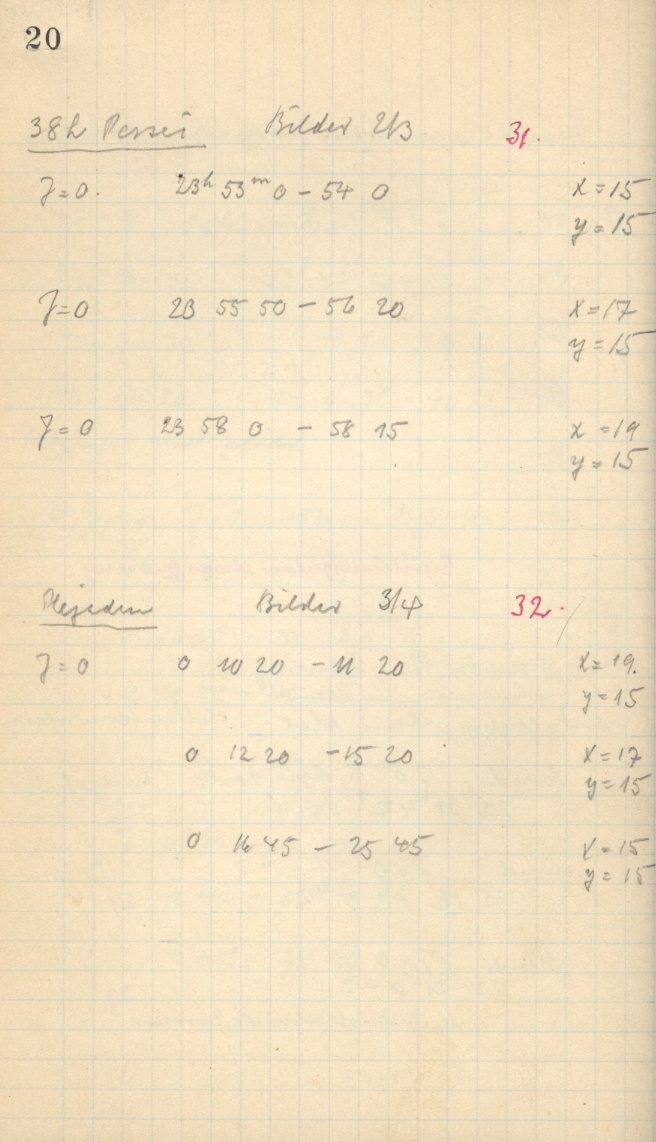 20
38h Persei Bilder 2/3 31.
J=0. 23h 53m 0 - 54 0 x=15
y=15
J=0 23 55 50 - 56 20 x=17
y=15
J=0 23 58 0 - 58 15 x=19
y=15
Plejaden Bilder 3/4 32.
J=0 0 10 20 - 11 20 x=19.
y=15
0 12 20 - 15 20 x=17
y=15
0 16 45 - 25 45 x=15
y=15